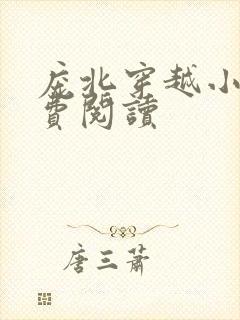 庇北穿越小
費閱讀
唐三蕭